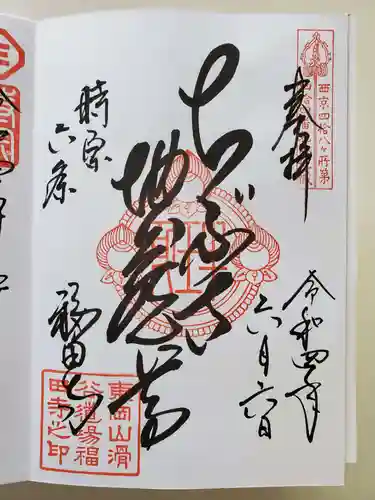 西京四拾八ヶ所第
奉拝
令和四年
六月六日
ちぶさ
地蔵尊
時宗
六条
福田寺
東岡山滑
谷道場福
田寺之印